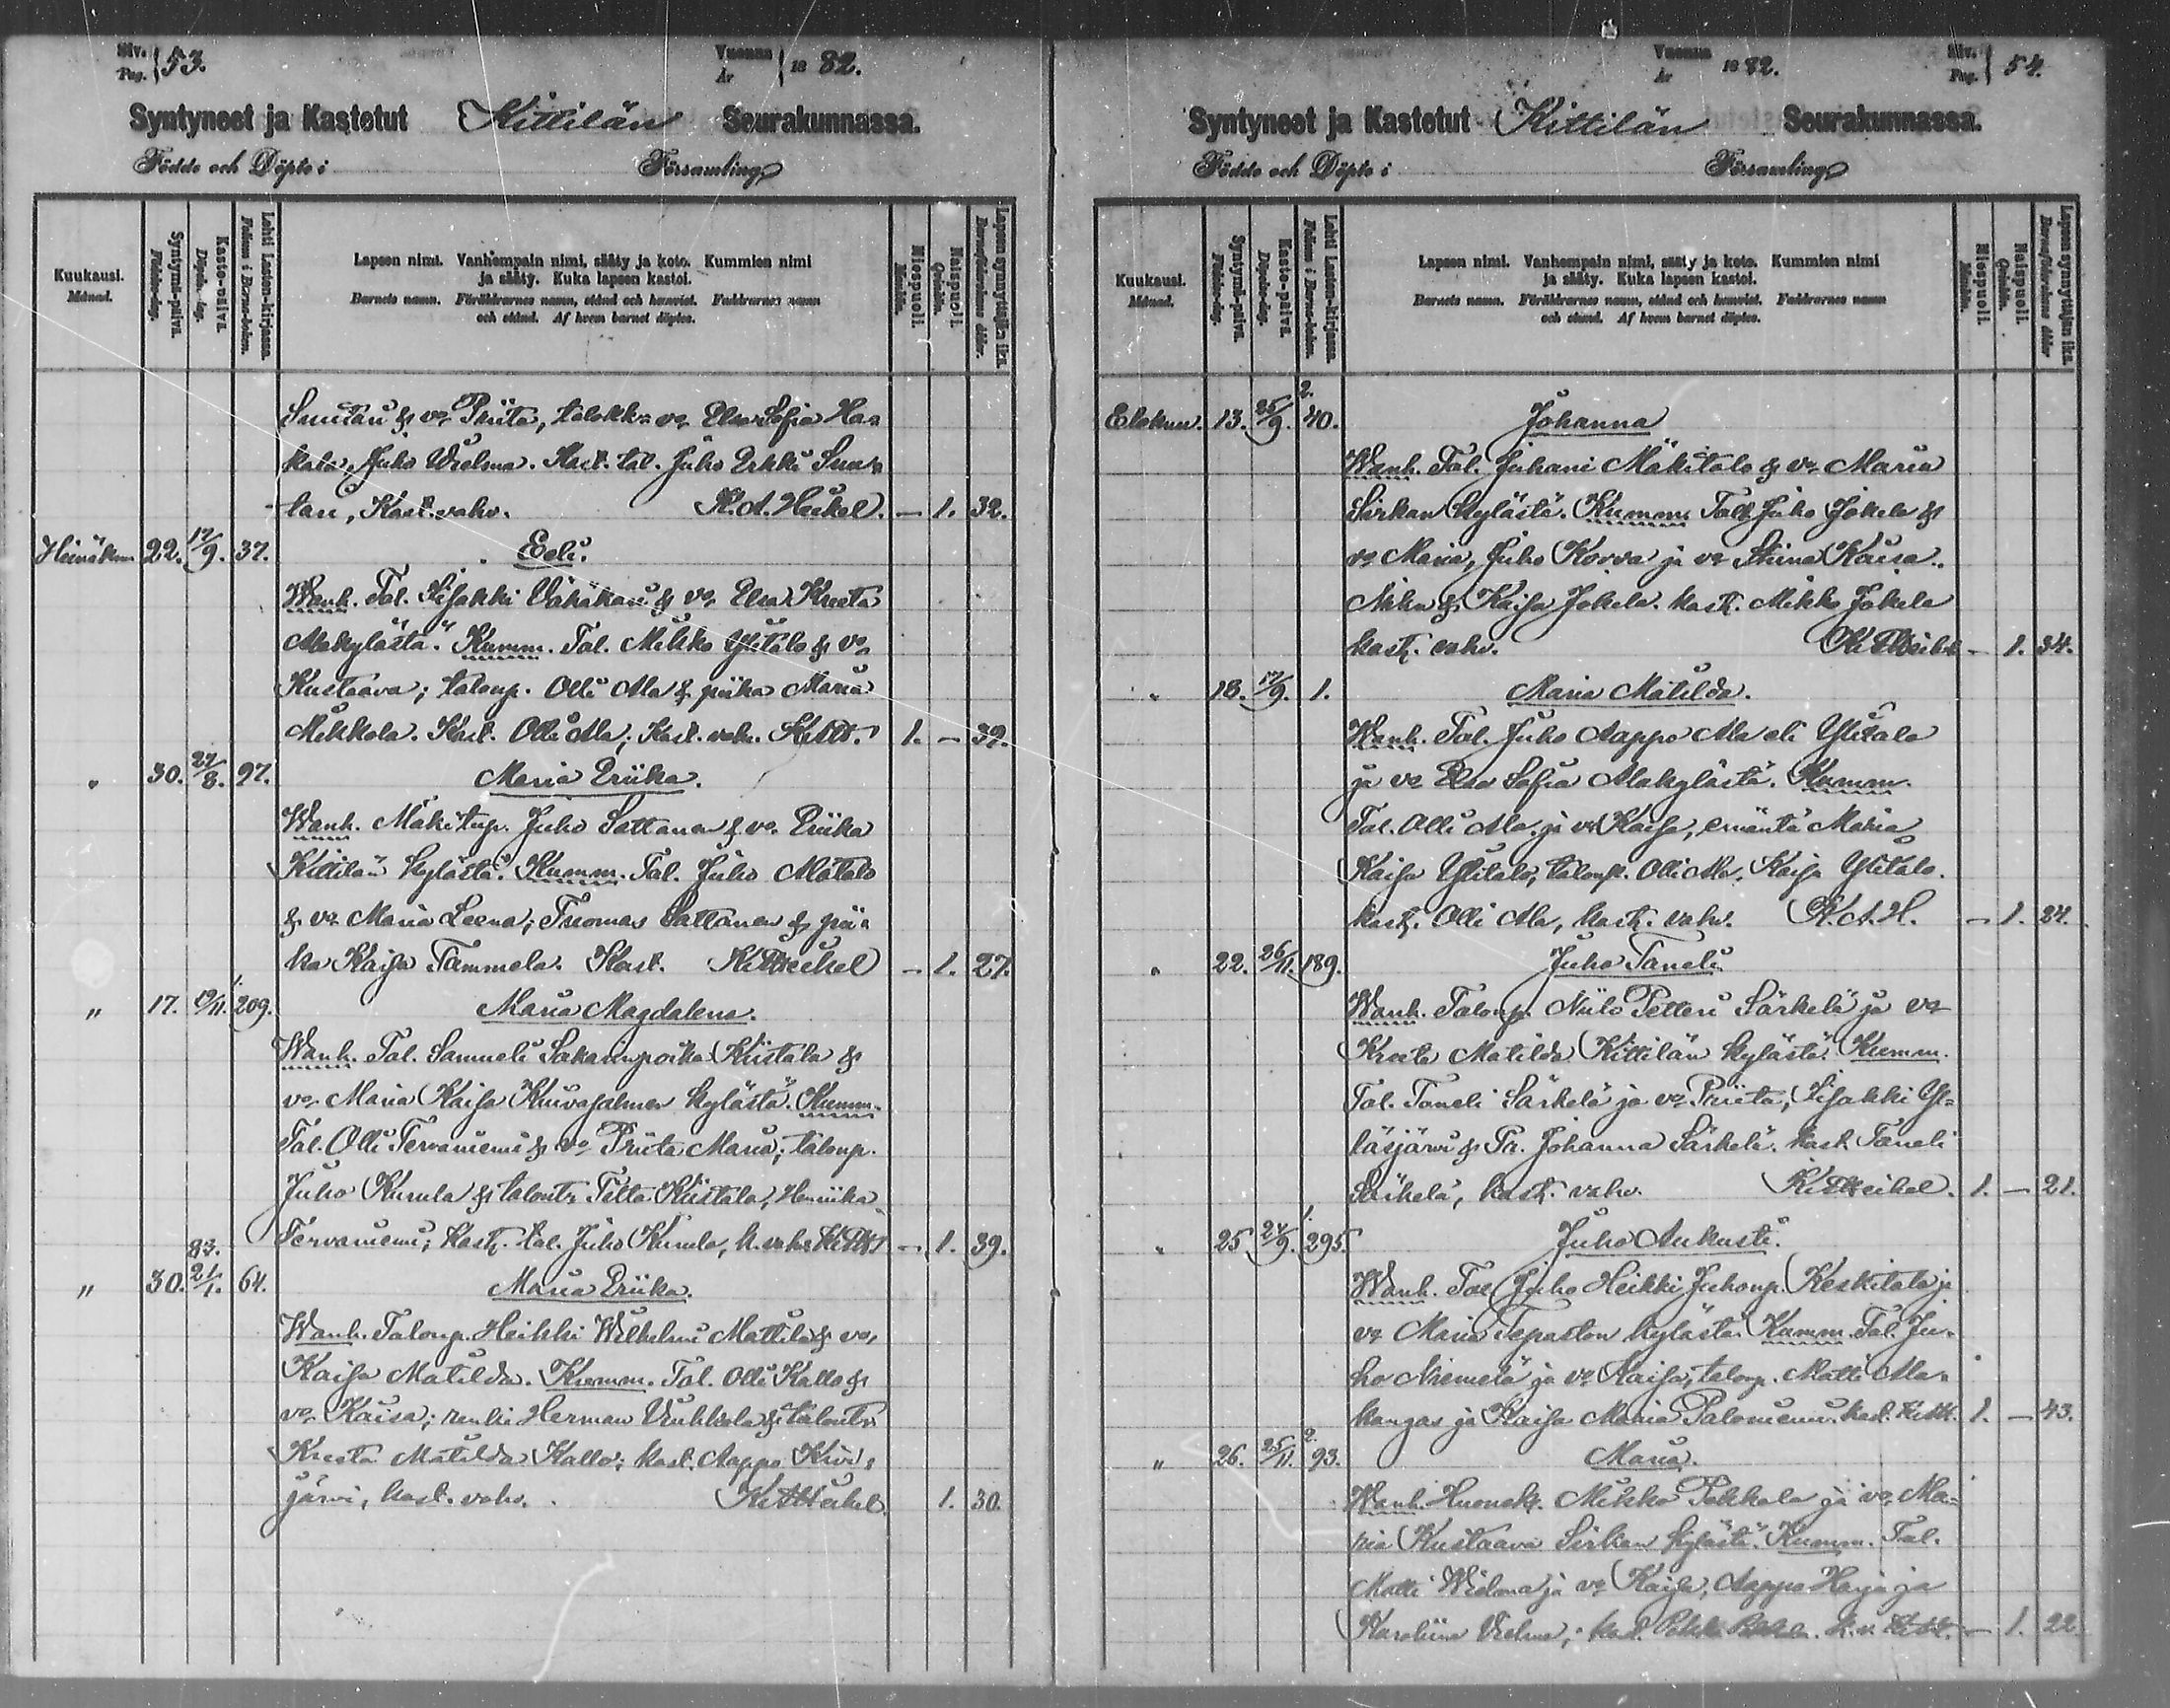 Siv. Pag. 53. Vuonna År 1882.
Syntyneet ja Kastetut Kittilän Seurakunnassa.
Födde och Döpte i Församling
Kuukausi. Månad.
Syntymä-päivä. Födelse-dag.
Kasto-päivä. Döpelse-dag.
Lehti Lasten-kirjassa. Folium i Barna-boken.
Lapsen nimi. Vanhempain nimi, sääty ja koto. Kummien nimi
ja sääty. Kuka lapsen kastoi.
Barnets namn. Föräldrarnes namn, stånd och hemvist. Faddrarnes namn
och stånd. Af hvem barnet döptes.
Miespuoli. Mankön.
Naispuoli. Qvinkön.
Lapsen synnyttäjän ikä. Barnaföderskans ålder.
Suutari & vo Priita, talokk. vo Elsa Sofia Ha-
kala, Juho Vielma. Kast. tal. Juho Erkki Suu-
tari, Kast. vahv. K. A. Heikel. — 1. 32.
Heinäkuu 22. 17/9. 37. Eeli.
Wanh. Tal. Iisakki Vähäkari & vo Elsa Kreeta
Alakylästä. Kumm. Tal. Mikko Ylitalo & vo
Kustaava; taloup. Olli Ala & piika Maria
Mikkola. Kast. Olli Ala; Kast. vahv. 1. — 39.
" 30. 27/8. 97. Maria Eriika.
Wanh. Mäkitup. Juho Sattanen & vo Eriika
Kittilän kylästä. Kumm. Tal. Juho Alatalo
& vo Maria Leena; Tuomas Sattanen & pii-
ka Kaisa Tammela. Kast. K A Heikel — 1. 27.
" 17. 19/11. 1. 209. Maria Magdalena.
Wanh. Tal. Samueli Sakarinpoika Kiistala &
vo Maria Kaisa Kuivasalmen kylästä. Kumm.
Tal. Olli Tervaniemi & vo Priita Maria; taloup.
Juho Kurula & talont. Kiistala, Henriika
Tervaniemi; Kast. tal. Juho Kurula, k. vahv. — 1. 39.
" 30. 83. 21/1. 64. Maria Eriika.
Wanh. Taloup. Heikki Wilhelmi Mattila & vo
Kaisa Matilda. Kumm. Tal. Olli Kallo &
vo Kaisa; renki Herman & talont.
Kreeta Matilda Kallo; kast. Aappo Kivi-
järvi, kast. vahv. K A Heikel 1. 30.
Siv. Pag. 54. Vuonna År 1882.
Syntyneet ja Kastetut Kittilän Seurakunnassa.
Födde och Döpte i Församling
Kuukausi. Månad.
Syntymä-päivä. Födelse-dag.
Kasto-päivä. Döpelse-dag.
Lehti Lasten-kirjassa. Folium i Barna-boken.
Lapsen nimi. Vanhempain nimi, sääty ja koto. Kummien nimi
ja sääty. Kuka lapsen kastoi.
Barnets namn. Föräldrarnes namn, stånd och hemvist. Faddrarnes namn
och stånd. Af hvem barnet döptes.
Miespuoli. Mankön.
Naispuoli. Qvinkön.
Lapsen synnyttäjän ikä. Barnaföderskans ålder
Elokuu. 13. 25/9. 2. 40. Johanna
Wanh. Tal. Juhani Mäkitalo & vo Maria
Sirkan kylästä. Kumm. Tal. Juho Jokela &
vo Maria, Juho Korva ja vo Stiina Kaisa.
& Kaisa Jokela. kast. Mikko Jokela
kast. vahv. K A Heikel — 1. 34.
" 18. 17/9. 1. Maria Matilda.
Wanh. Tal. Juho Aappo Ala eli Ylitalo
ja vo Elsa Sofia Alakylästä. Kumm.
Tal. Olli Ala ja vo Kaisa, emäntä Maria
Kaisa Ylitalo, taloup. Olli Ala, Kaisa Ylitalo.
kast. Olli Ala, kast. vahv. K. A. H. — 1. 24.
" 22. 26/11. 189. Juho Taneli
Wanh. Taloup. Niilo Petteri Särkelä ja vo
Kreeta Matilda Kittilän kylästä. Kumm.
Tal. Taneli Särkelä ja vo Priita, Iisakki Yl-
läsjärvi & Pr. Johanna Särkelä. kast. Taneli
Särkelä, kast. vahv. K A Heikel. 1. — 21.
" 25 24/9. 1. 295. Juho Aukusti.
Wanh. Tal. Juho Heikki Juhonp. Keskitalo ja
vo Maria Tepaston kylästä. Kumm. Tal. Ju-
ho Niemelä ja vo Kaisa, taloup. Matti Ala-
kangas ja Kaisa Maria Palouniemi. kast. 1. — 43.
" 26. 25/11. 2. 93. Maria.
Wanh. Huonek. Mikko Pekkala ja vo Ma-
ria Kustaava Sirkan kylästä. Kumm. Tal.
Matti Wielma ja vo Kaisa, Aappo Harju ja
Karoliina Vielma; kast. k. v. — 1. 22